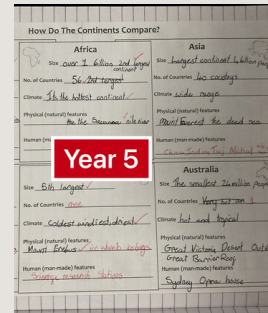 How Do The Continents Compare?
Africa
Size over 1 billion 2nd largest
continent
No. of Countries 56 2nd largest
Climate Its the hottest continent
Physical (natural) features
the Savannah
Human
Asia
Size Largest continent 4 billion
No. of Countries 40 countries
Climate wide range
Physical (natural) features
Mount Everest the dead sea
Human (man-made) features
China Taj Mahal
Year 5
Size 5th largest
No. of Countries none
Climate Coldest windiest, driest
Physical (natural) features
Mount Erebus
Human (man-made) features
Science research Stations
Australia
Size The smallest 26 million people
No. of Countries
Climate hot and tropical
Physical (natural) features
Great Victoria Desert
Great Barrier Reef
Human (man-made) features
Sydney Opera house